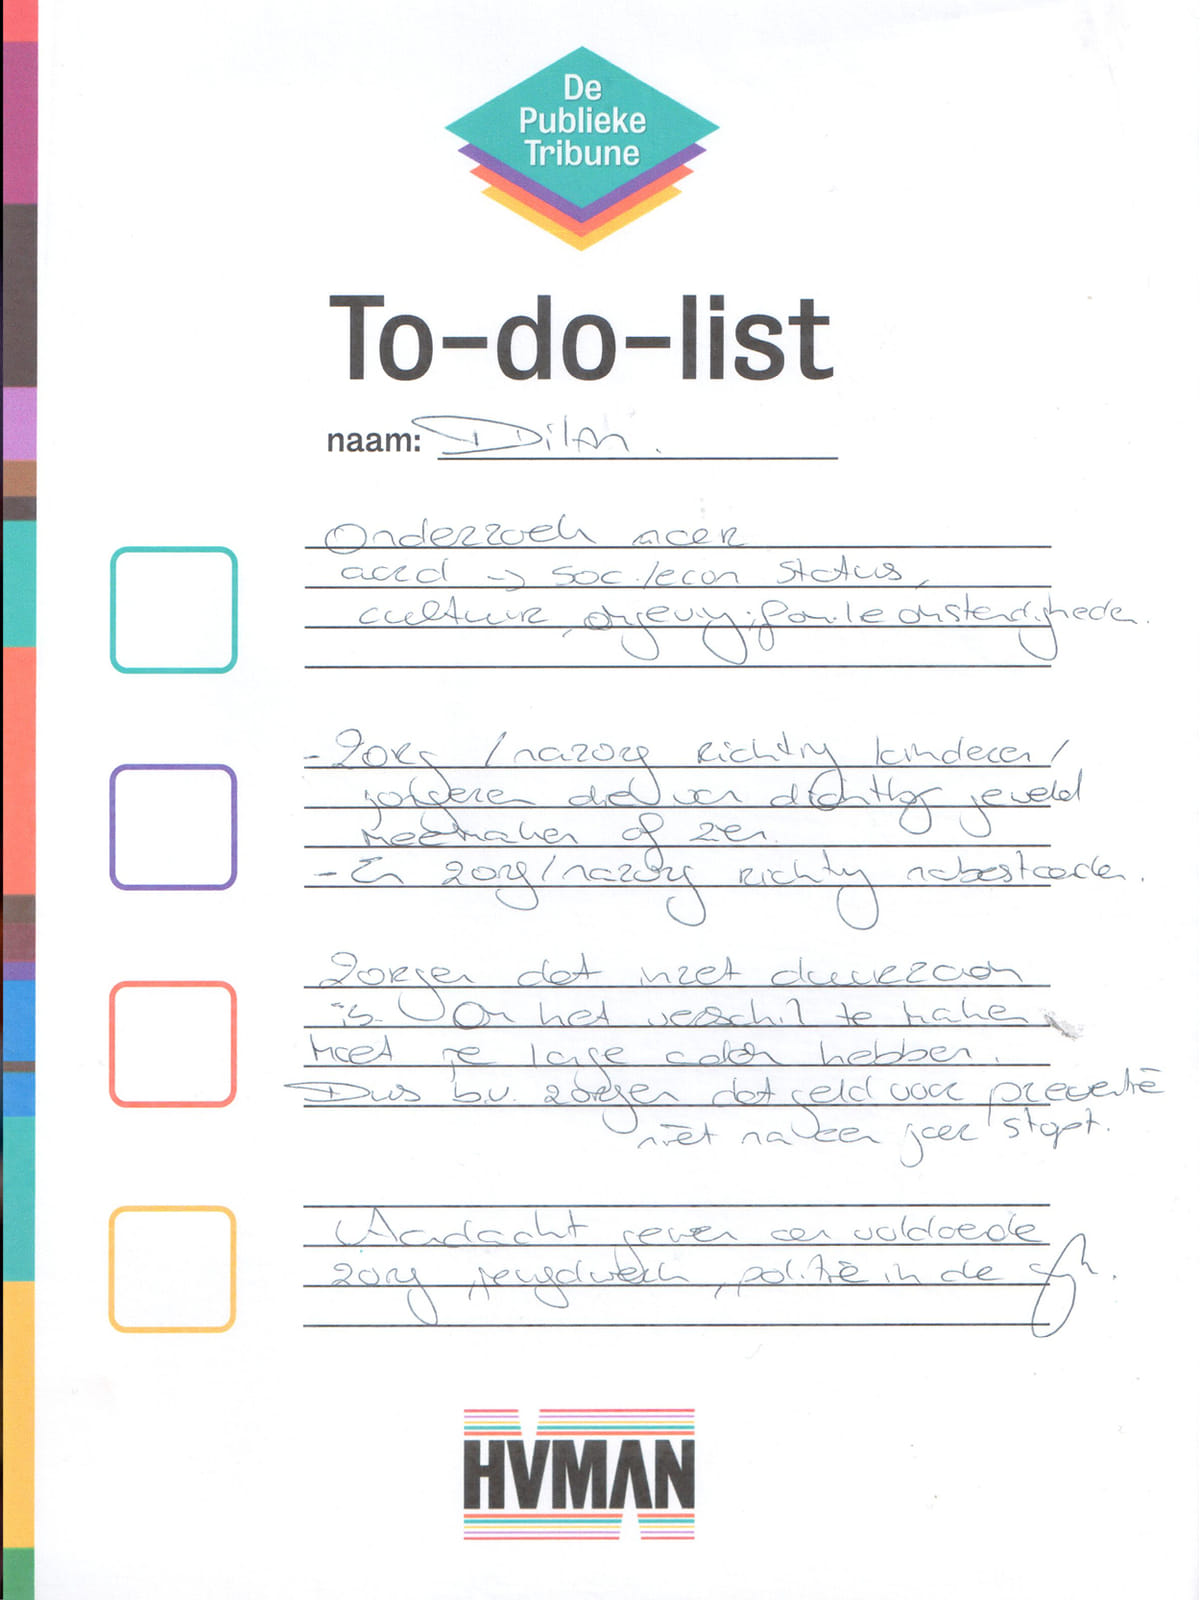 De
Publieke
Tribune
To-do-list
naam: Dilan.
Onderzoek naar
aard -> soc./econ status,
cultuur, omgeving, familieomstandigheden.
- Zorg / nazorg richting kinderen/
jongeren die van dichtbij geweld
meemaken of zien.
- En zorg/nazorg richting nabestaanden.
Zorgen dat inzet duurzaam
is. Om het verschil te maken
moet je lange adem hebben.
Dus b.v. zorgen dat geld voor preventie
niet na een jaar stopt.
Aandacht geven aan voldoende
zorg, jeugdwerk, politie in de wijk.
HVMAN